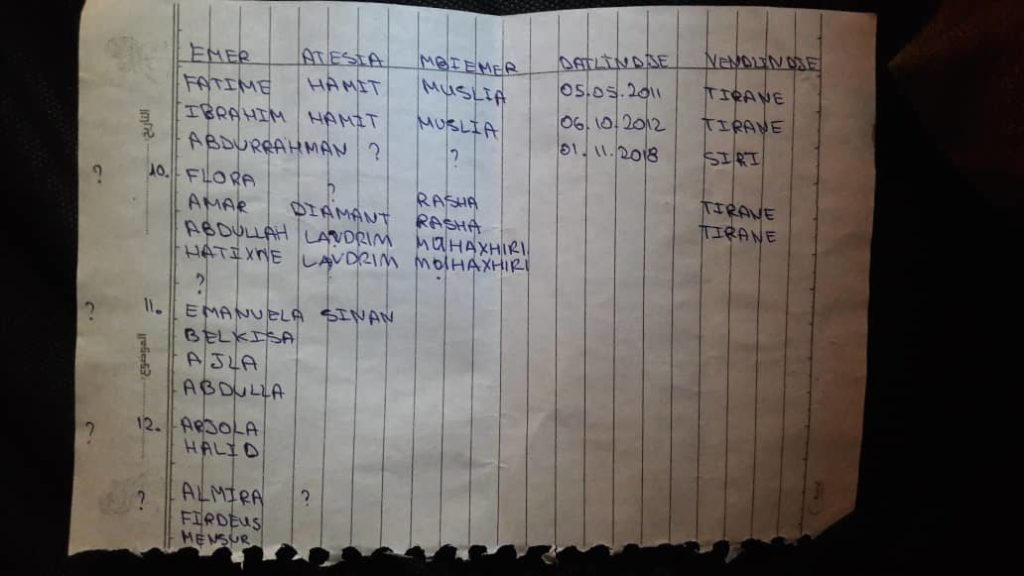 EMER ATESIA MBIEMER DATLINDJE VENDLINDJE
FATIME HAMIT MUSLIA 05.05.2011 TIRANE
IBRAHIM HAMIT MUSLIA 06.10.2012 TIRANE
ABDURRAHMAN ? ? 01.11.2018 SIRI
? 10. FLORA ?
AMAR DIAMANT RASHA TIRANE
ABDULLAH LAVDRIM RASHA TIRANE
HATIXHE LAVDRIM MUHAXHIRI
MUHAXHIRI
?
? 11. EMANUELA SINAN
BELKISA
AJLA
ABDULLA
? 12. ARJOLA
HALID
? ALMIRA ?
FIRDEUS
MENSUR